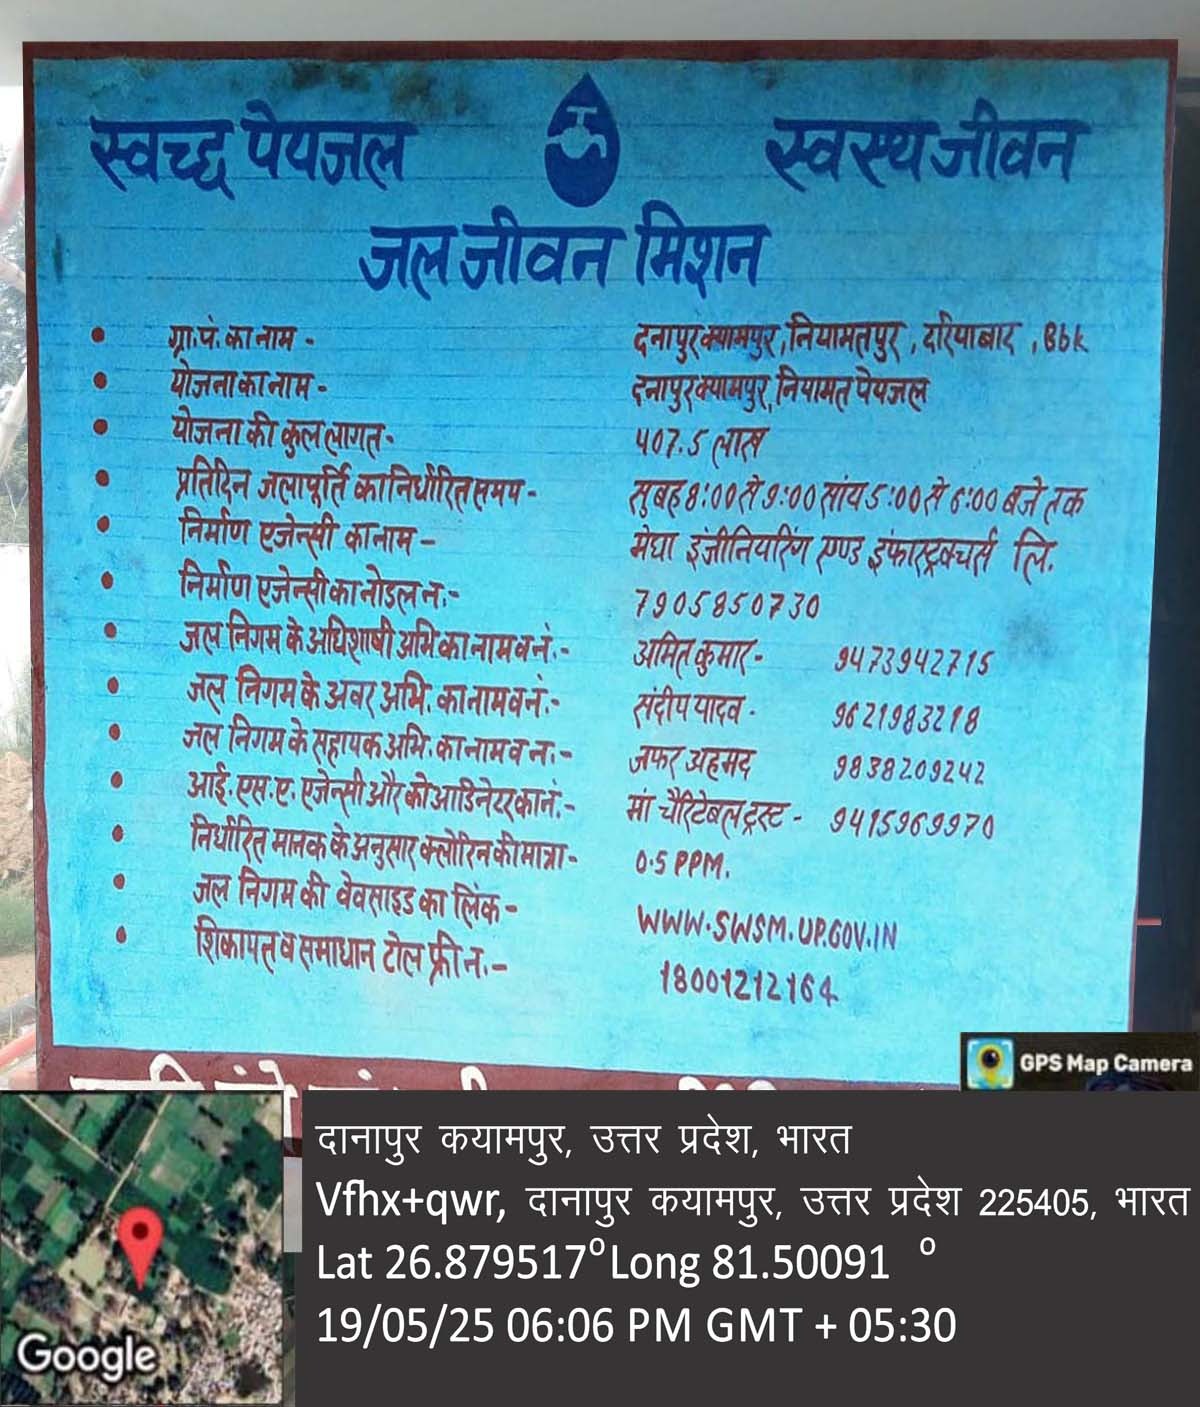 स्वच्छ पेयजल स्वस्थ जीवन
जल जीवन मिशन
• ग्रा.पं. का नाम - दनापुर क्यामपुर, नियामतपुर, दरियाबाद, Bbk
• योजना का नाम - दनापुर क्यामपुर, नियामत पेयजल
• योजना की कुल लागत - 407.5 लाख
• प्रतिदिन जलापूर्ति का निर्धारित समय - सुबह 8:00 से 9:00 सांय 5:00 से 6:00 बजे तक
• निर्माण एजेन्सी का नाम - मेघा इंजीनियरिंग एण्ड इंफास्ट्रक्चर्स लि.
• निर्माण एजेन्सी का नोडल न.:- 7905850730
• जल निगम के अधिशाषी अभि का नाम व नं.:- अमित कुमार - 9473942715
• जल निगम के अवर अभि. का नाम व नं.:- संदीप यादव - 9621983218
• जल निगम के सहायक अभि. का नाम व न.:- जफर अहमद 9838209242
• आई.एस.ए. एजेन्सी और को आडिनेटर का नं.:- मां चैरिटेबल ट्रस्ट - 9415969970
• निर्धारित मानक के अनुसार क्लोरिन की मात्रा - 0.5 PPM.
• जल निगम की वेवसाइड का लिंक - WWW.SWSM.UP.GOV.IN
• शिकायत व समाधान टोल फ्री न.:- 18001212164
GPS Map Camera
दानापुर कयामपुर, उत्तर प्रदेश, भारत
Vfhx+qwr, दानापुर कयामपुर, उत्तर प्रदेश 225405, भारत
Lat 26.879517° Long 81.50091 °
19/05/25 06:06 PM GMT + 05:30
Google